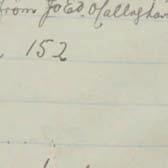 from Jo Ed. O'Callaghan
152